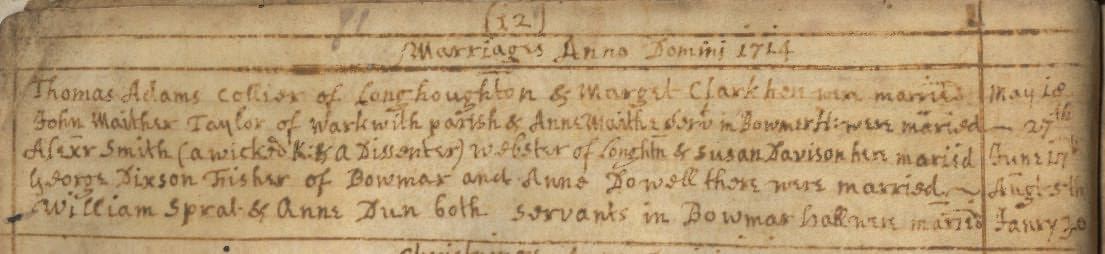 (12)
Marriages Anno Domini 1714
Thomas Adams Collier of Longhoughton & Marget Clark here were married May 18
John Maither Taylor of Warkwith parish & Anne Maithe servt in Bowmer H: were married ~ 27th
Alexr Smith (a wickd K: & a Dissenter) Webster of Longhtn & Susan Davison here maried June 17th
George Dixson Fisher of Bowmar and Anne Dowell there were married ~ Augt 5th
William Sprat & Anne Dun both servants in Bowmar hall were maried Janry 20